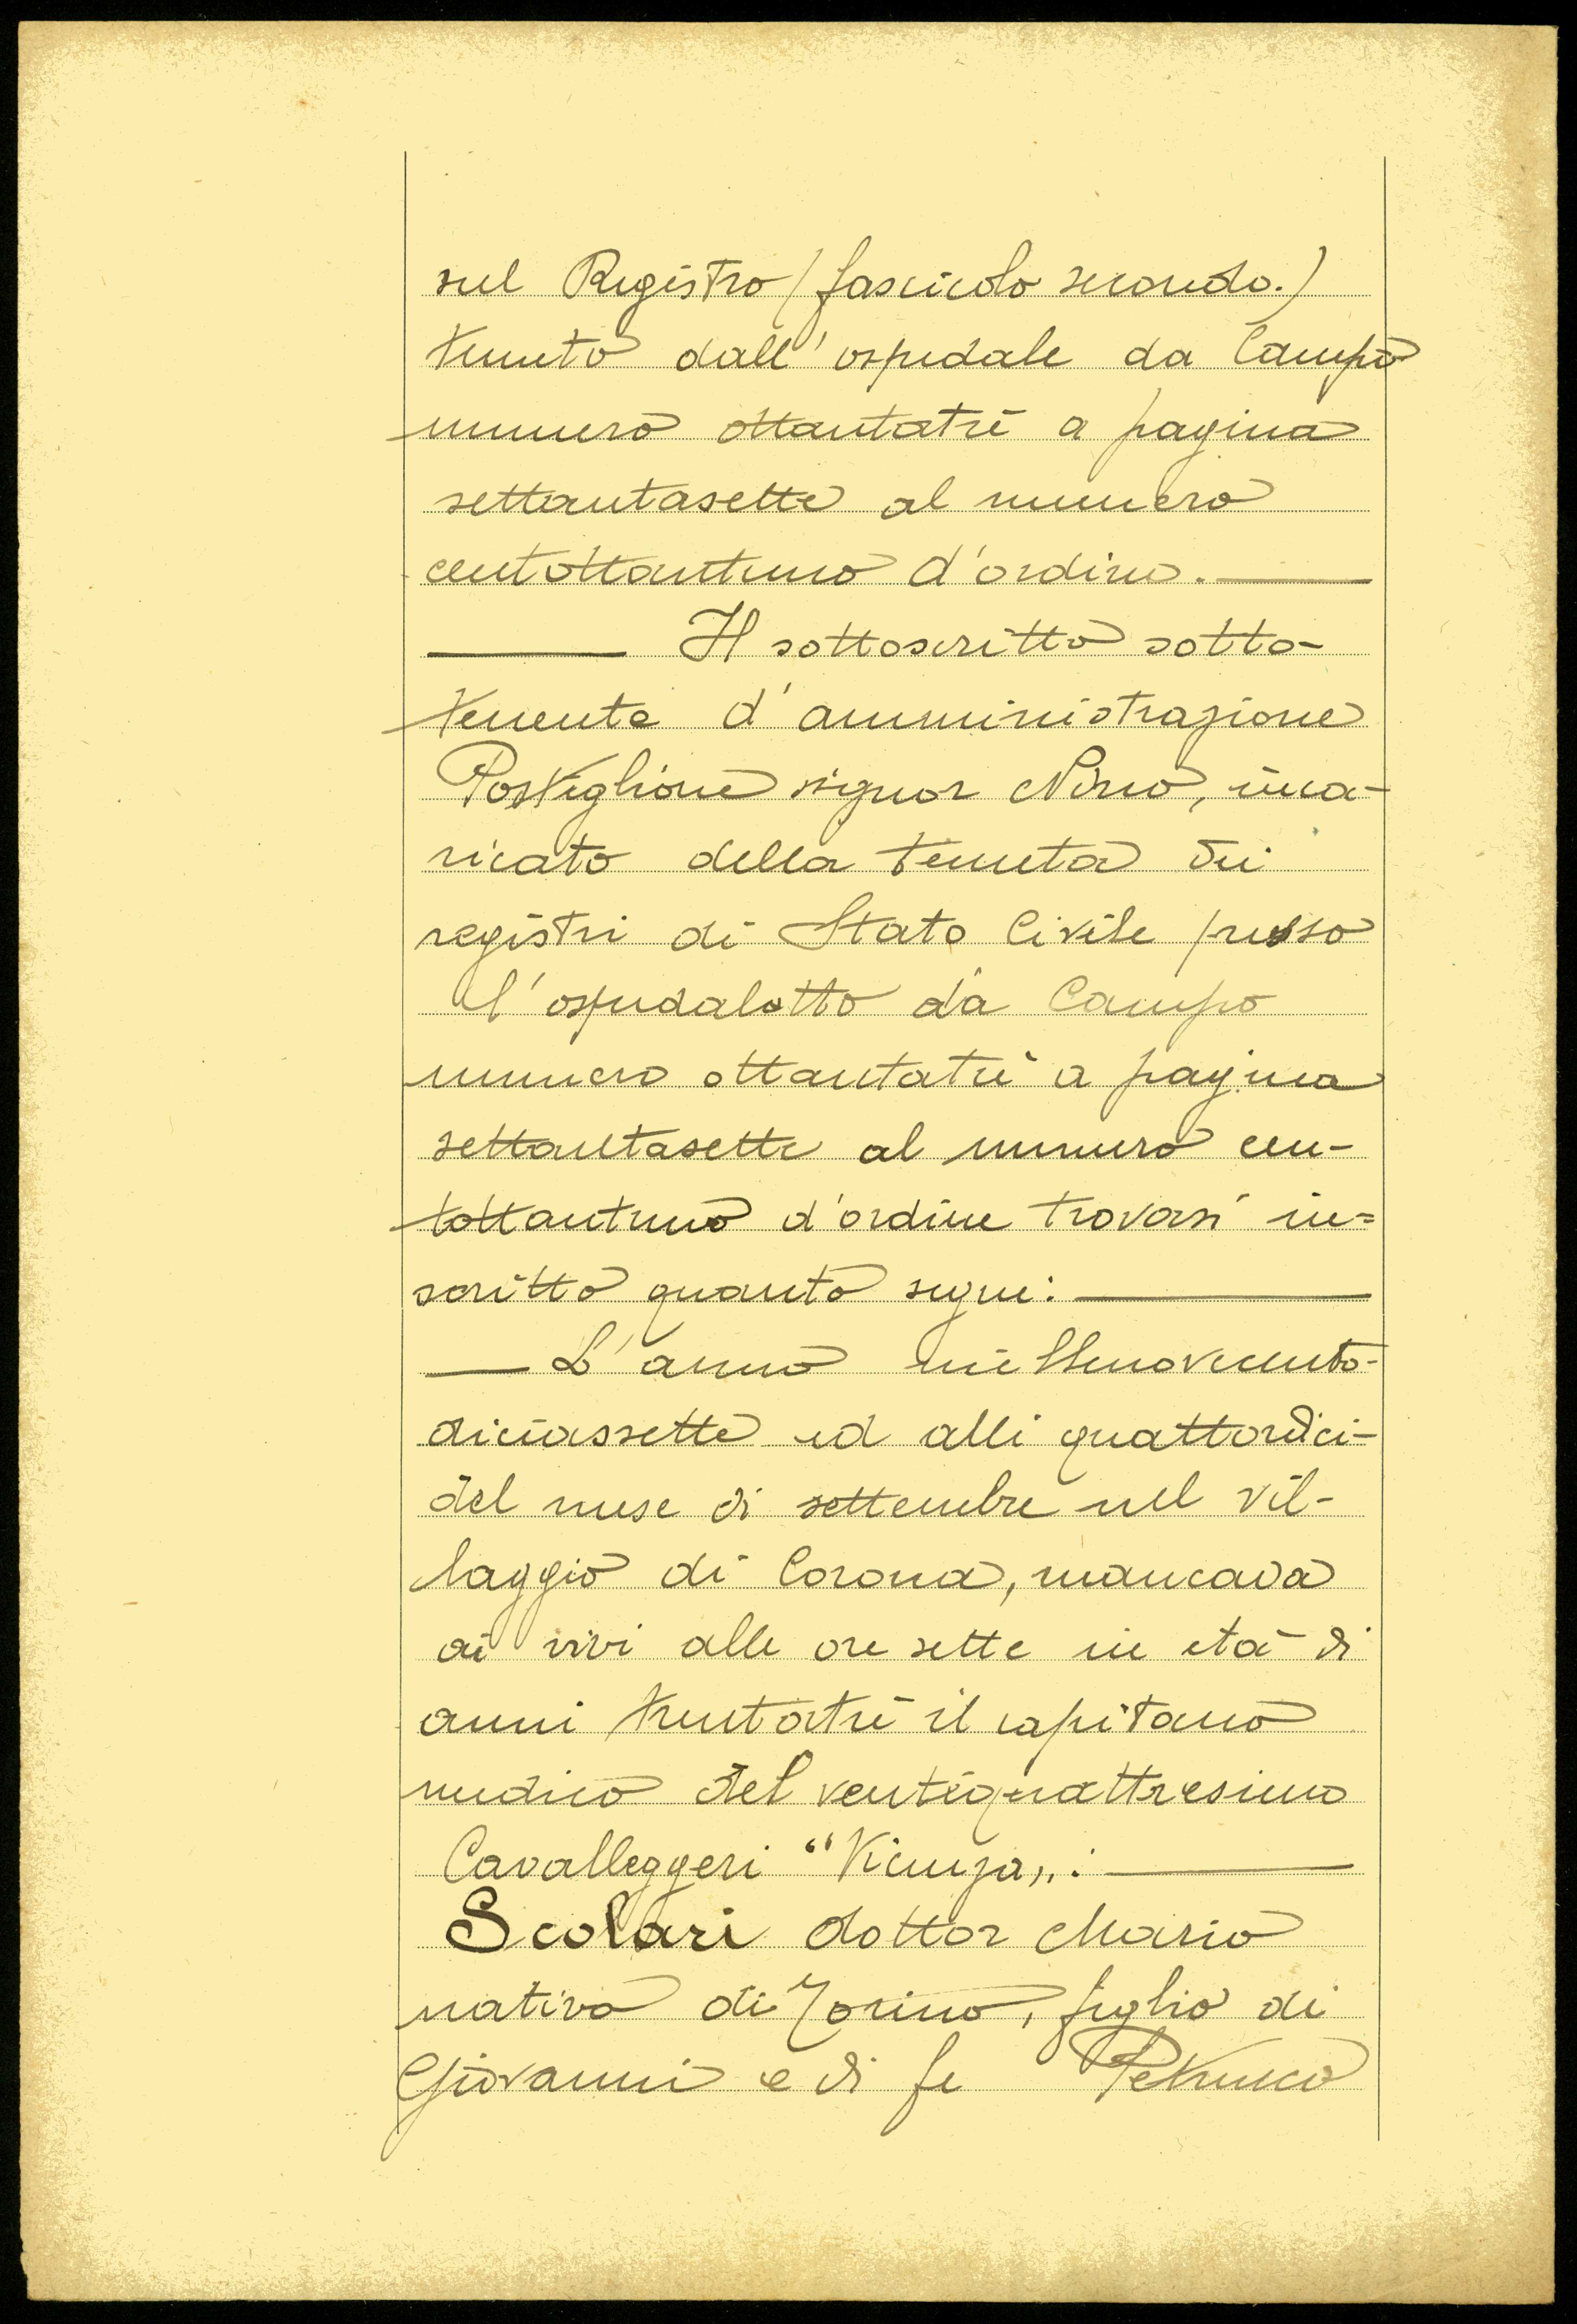 sul Registro (fascicolo secondo.)
tenuto dall'ospedale da Campo
numero ottantatrè a pagina
settantasette al numero
centottantuno d'ordine.
Il sottoscritto sotto-
tenente d'amministrazione
Postiglione signor Nino, inca-
ricato della tenuta dei
registri di Stato Civile presso
l'ospedaletto da Campo
numero ottantatrè a pagina
settantasette al numero cen-
tottantuno d'ordine trovasi in=
scritto quanto segue:
L'anno millenovecento-
diciassette ed alli quattordici-
del mese di settembre nel vil-
laggio di Corona, mancava
ai vivi alle ore sette in età di
anni trentatrè il capitano
medico del ventiquattresimo
Cavalleggeri "Vicenza„:
Scolari dottor Mario
nativo di Torino, figlio di
Giovanni e di fu